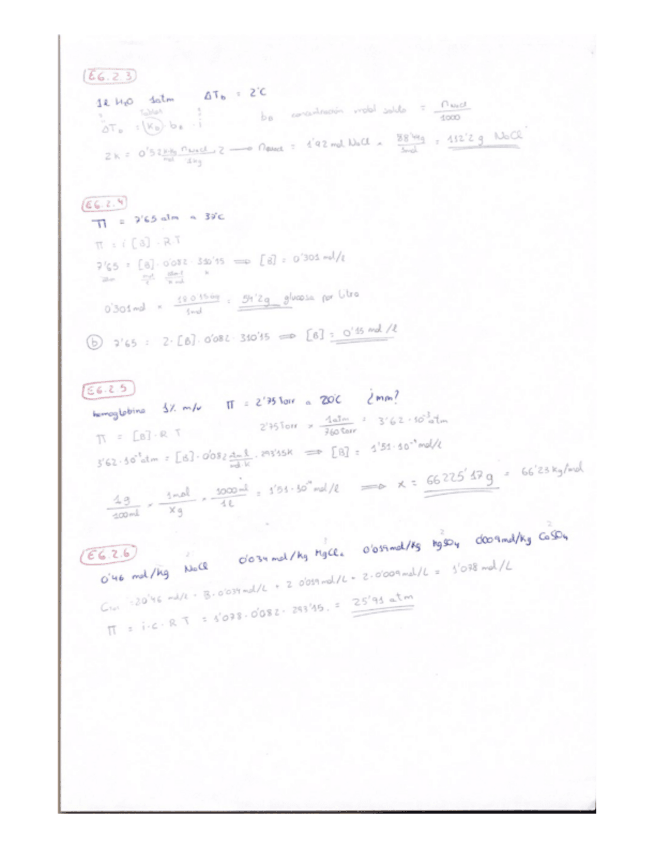 E6.2.3
1l H₂O 1atm ΔT_b = 2°C
ΔT_b = K_b · b_B · i b_B concentración molal soluto = n_NaCl / 1000
2K = 0'52 n_NaCl · 2 → n_NaCl = 1'92 mol NaCl × / 1mol = 112'2 g NaCl
E6.2.4
Π = 7'65 atm a 37°C
Π = i [B] · R T
7'65 = [B] · 0'082 · 310'15 ⟹ [B] = 0'301 mol/l
0'301 mol × / 1mol = 54'2g glucosa por litro
(b) 7'65 = 2 · [B] · 0'082 · 310'15 ⟹ [B] = 0'15 mol/l
E6.2.5
hemoglobina 1% m/v Π = 2'75 torr a 20C ¿mm?
Π = [B] · R T 2'75 torr × 1atm / 760 torr = 3'62 · 10⁻³ atm
3'62 · 10⁻³ atm = [B] · 0'082 atm l / mol K · 293'15K ⟹ [B] = 1'51 · 10⁻⁴ mol/l
1g / 100ml × 1mol / x g × 1000ml / 1l = 1'51 · 10⁻⁴ mol/l ⟹ x = 66225'17 g = 66'23 kg/mol
E6.2.6
0'46 mol/kg NaCl 0'034 mol/kg MgCl₂ 0'019 mol/kg MgSO₄ 0'009 mol/kg CaSO₄
2 · 0'46 mol/l + 3 · 0'034 mol/L + 2 · 0'019 mol/L + 2 · 0'009 mol/L = 1'078 mol/L
Π = i · c · R T = 1'078 · 0'082 · 293'15 = 25'91 atm